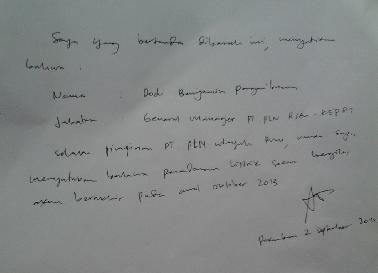 Saya yang bertanda dibawah ini, menyatakan
bahwa :
Nama : Dodi Benyamin Pangaribuan
Jabatan General Manager PT PLN Riau - KEPRI
selaku pimpinan PT PLN wilayah Riau,
menyatakan bahwa pemadaman listrik secara bergilir
akan berakhir pada awal oktober 2013
Pekanbaru 2 september 2013